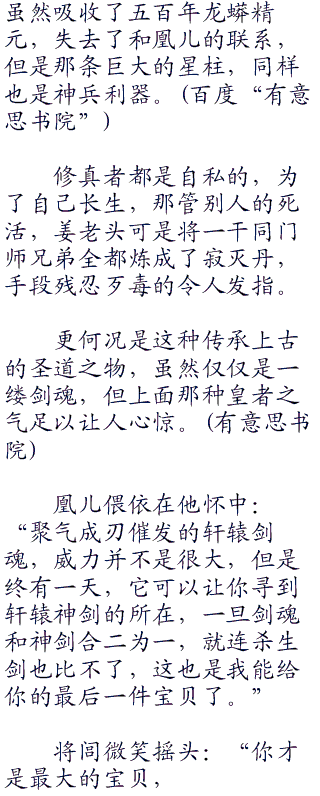 虽然吸收了五百年龙蟒精
元，失去了和凰儿的联系，
但是那条巨大的星柱，同样
也是神兵利器。(百度“有意
思书院”)
修真者都是自私的，为
了自己长生，那管别人的死
活，姜老头可是将一干同门
师兄弟全都炼成了寂灭丹，
手段残忍歹毒的令人发指。
更何况是这种传承上古
的圣道之物，虽然仅仅是一
缕剑魂，但上面那种皇者之
气足以让人心惊。(有意思书
院)
凰儿偎依在他怀中：
“聚气成刃催发的轩辕剑
魂，威力并不是很大，但是
终有一天，它可以让你寻到
轩辕神剑的所在，一旦剑魂
和神剑合二为一，就连杀生
剑也比不了，这也是我能给
你的最后一件宝贝了。”
将闾微笑摇头：“你才
是最大的宝贝，